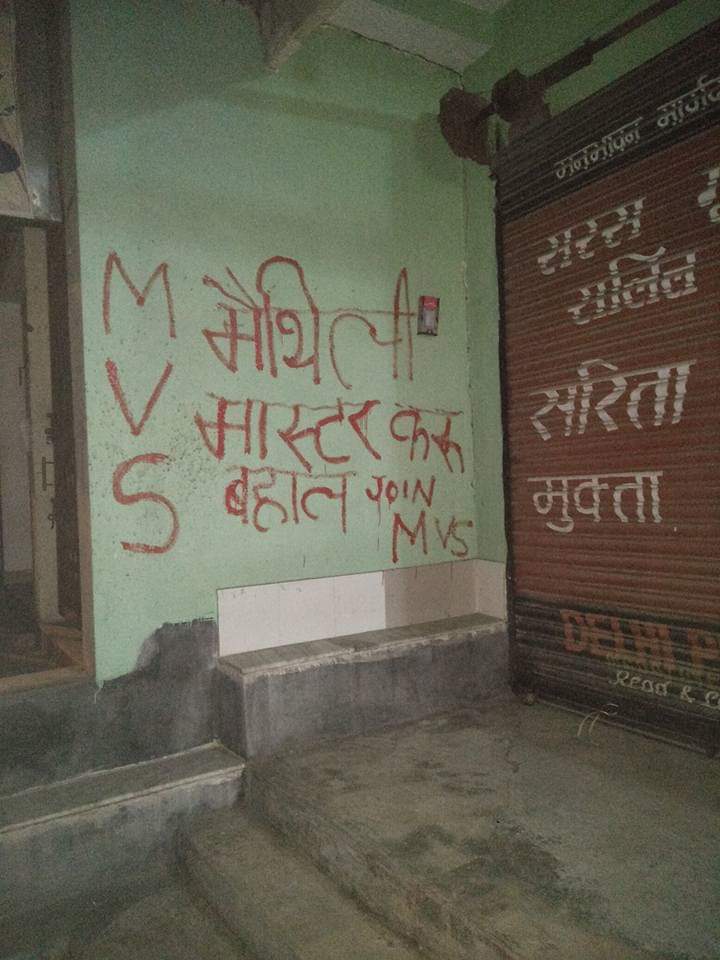 M
V
S
मैथिली
मास्टर करू
बहाल JOIN
MVS
मनभावन
सरस
सलिल
सरिता
मुक्ता
DELHI
Read &